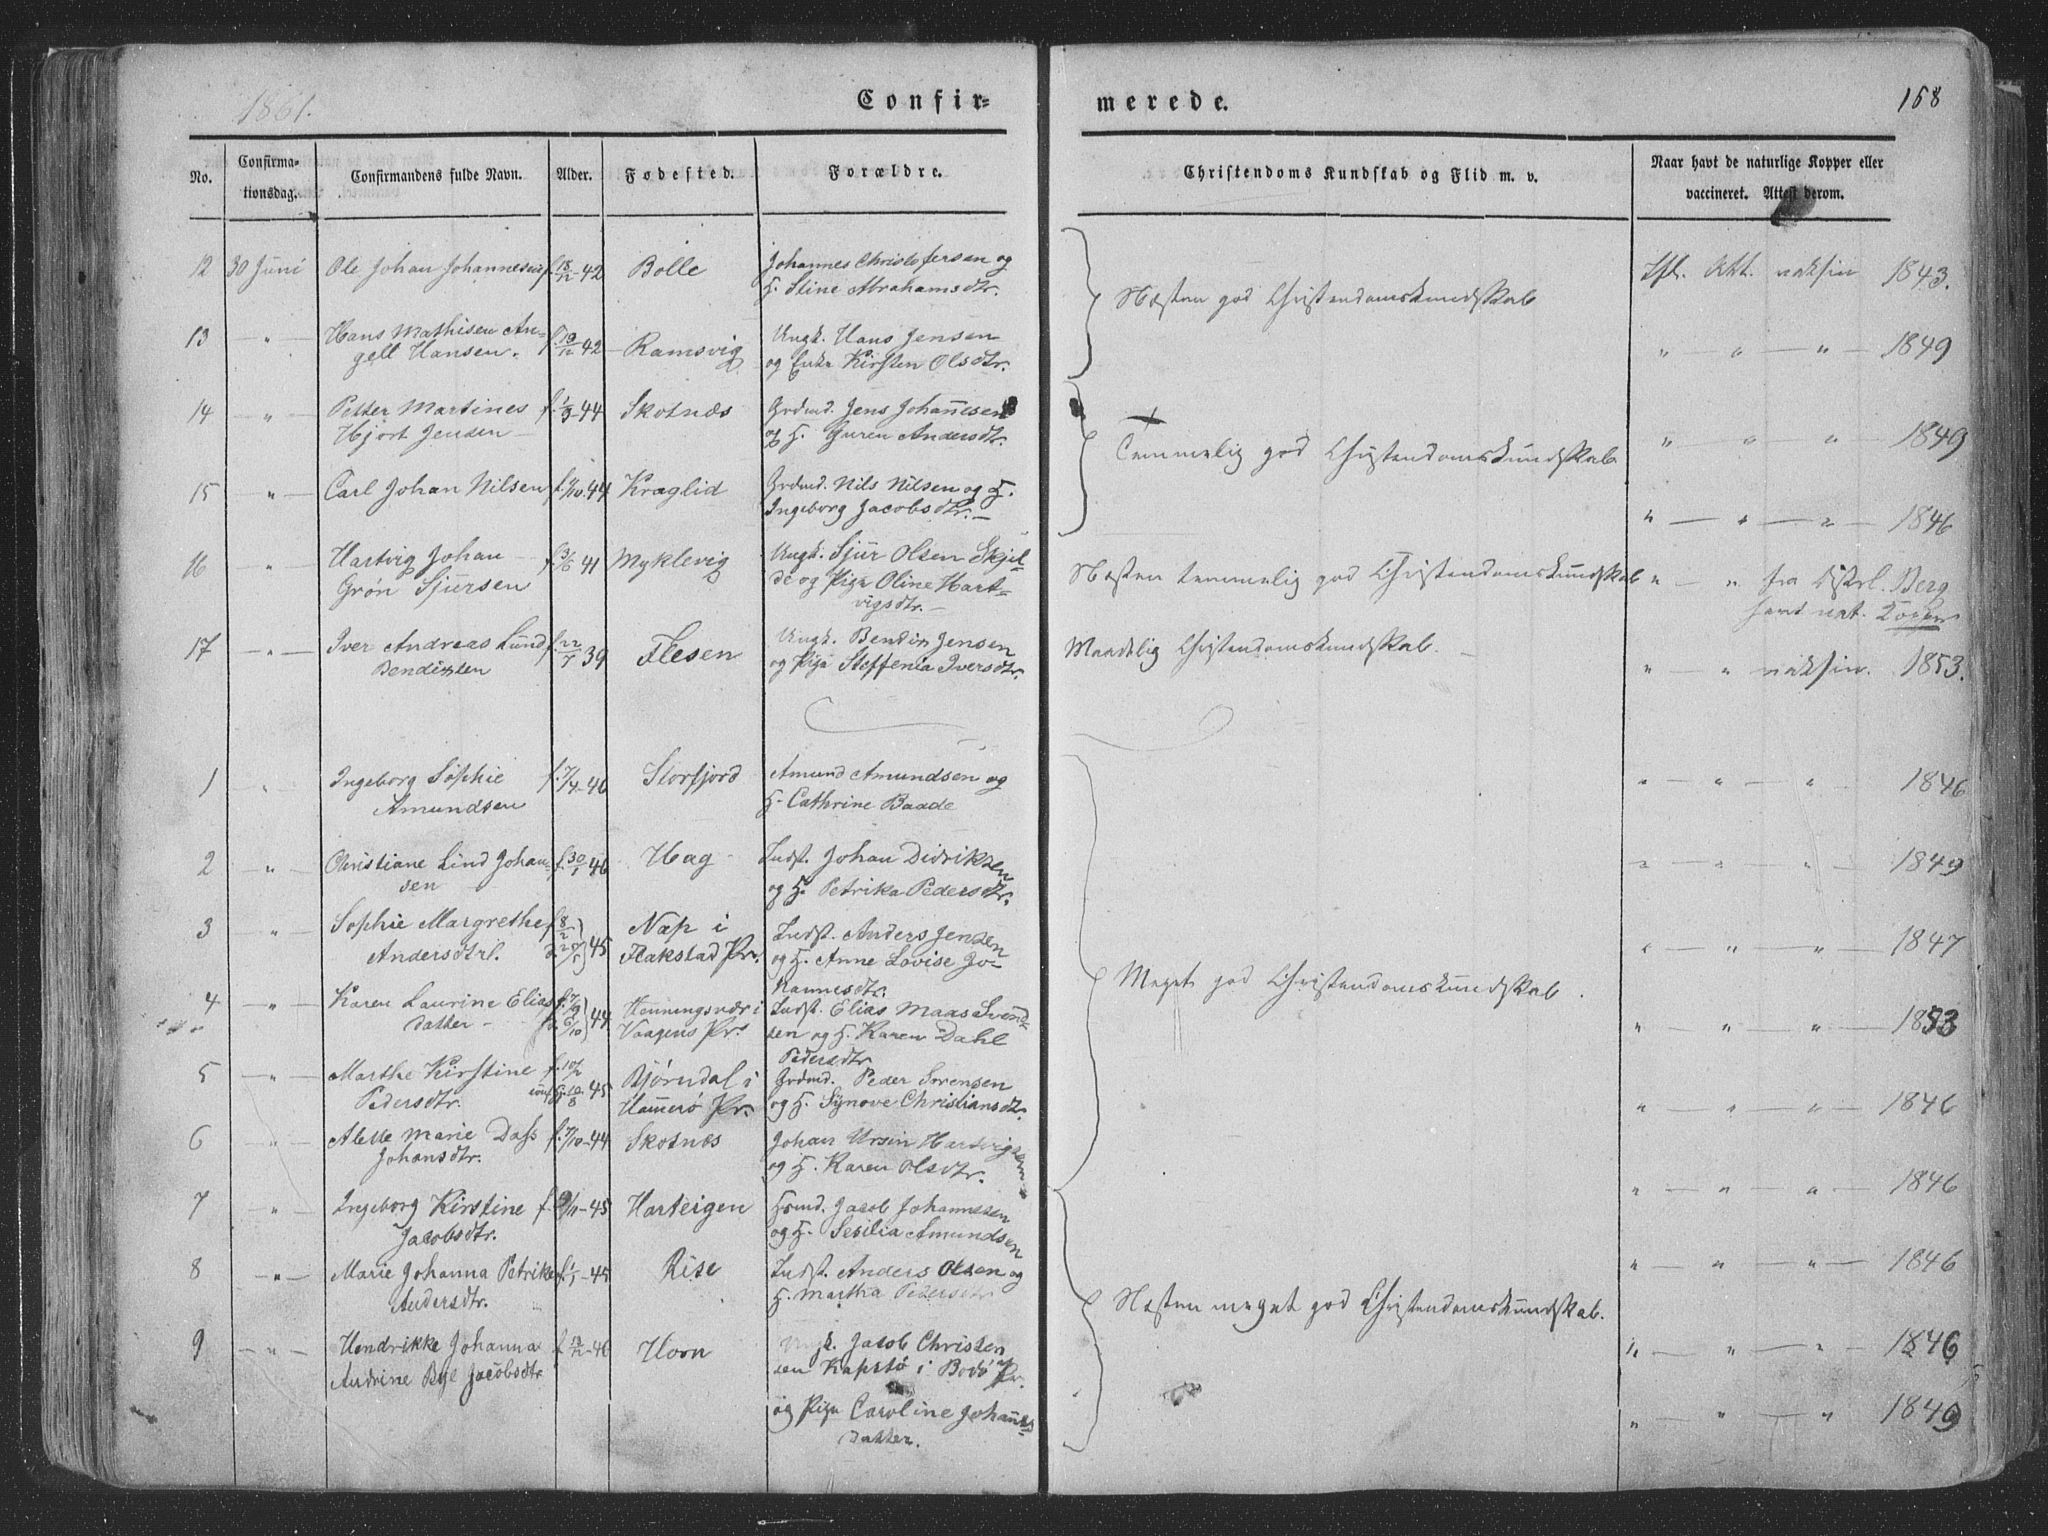 1861.
Confir-
merede.
158
No.
Confirma-
tionsdag.
Confirmandens fulde Navn.
Alder.
Fødested.
Forældre.
Christendoms Kundskab og Flid m. v.
Naar havt de naturlige Kopper eller
vaccineret. Attest derom.
12 30 Juni Ole Johan Johannessen f. 18/12 - 42 Bolle Johannes Christofersen og
H. Stine Abrahamsdtr.
Næsten god Christendomskundskab
Ifl. Att. vaksin 1843.
13 " Hans Mathisen An-
gell Hansen. f 13/12 42 Ramsvig Ungk. Hans Jensen
og Enke Kirsten Olsdtr.
" " " 1849
14 " Petter Martines
Hjort Jensen f. 1/3 - 44 Skotnæs Grdmd. Jens Johannesen
og H. Guren Andersdtr.
Temmelig god Christendomskundskab
" " " 1849
15 " Carl Johan Nilsen f. 9/10 44 Kraglid Grdmd. Nils Nilsen og H.
Ingeborg Jacobsdtr.
" " " 1846
16 " Hartvig Johan
Grøn Sjursen f. 3/6 41 Myklevig Ungk. Sjur Olsen Skjel-
de og Pige Oline Hart-
vigsdtr.
Næsten temmelig god Christendomskundskab
" " fra Distrl. Berg
havd nat. Kopper
17 " Iver Andreas Lund
Bendixen f. 22/7 39 Flesen Ungk. Bendix Jensen
og Pige Steffenia Iversdtr.
Maadelig Christendomskundskab.
" " vaksin. 1853.
1 " Ingeborg Sophie
Amundsen f. 7/4 - 46 Storfjord Amund Amundsen og
H. Cathrine Baade
" " " 1846
2 " Christiane Lind Johan-
sen f. 30/1 46 Hag Indst. Johan Didriksen
og H. Petrika Pedersdtr.
" " " 1849
3 " Sophie Margrethe
Andersdtr. f 8/2 45 Nap i
Flakstad Pr. Indst. Anders Jensen
og H. Anne Lovise Jo-
hannesdtr.
" " " 1847
4 " Karen Laurine Elias
datter 44 Henningsvær i
Vaagens Pr. Indst. Elias Maas Svend-
sen og H. Karen Dahl
Pedersdtr
Meget god Christendomskundskab.
" " " 1853
5 " Marthe Kirstine
Pedersdtr. 45 Bjørndal i
Hamerø Pr. Grdmd. Peder Sørensen
og H. Synove Christiansdtr.
" " " 1846
6 " Alette Marie Dass
Johansdtr. f. 7/10 - 44 Skotnæs Johan Ursin Hartvigsen
og H. Karen Olsdtr.
" " " 1846
7 " Ingeborg Kirstine
Jacobsdtr. f. 9/11 - 45 Harteigen Hsmd. Jacob Johannesen
og H. Sesilia Amundsen
" " " 1846
8 " Marie Johanna Petrike
Andersdtr. f. 1/1 - 45 Rise Indst. Anders Olsen og
H. Martha Pedersdtr
Næsten meget god Christendomskundskab.
" " " 1846
9 " Hendrikke Johanna
Andrine Bye Jacobsdtr f. 12/12 - 46 Horn Ungk. Jacob Christen
sen Kapstø i Bodø Pr.
og Pige Caroline Johannes
datter.
" " " 1849